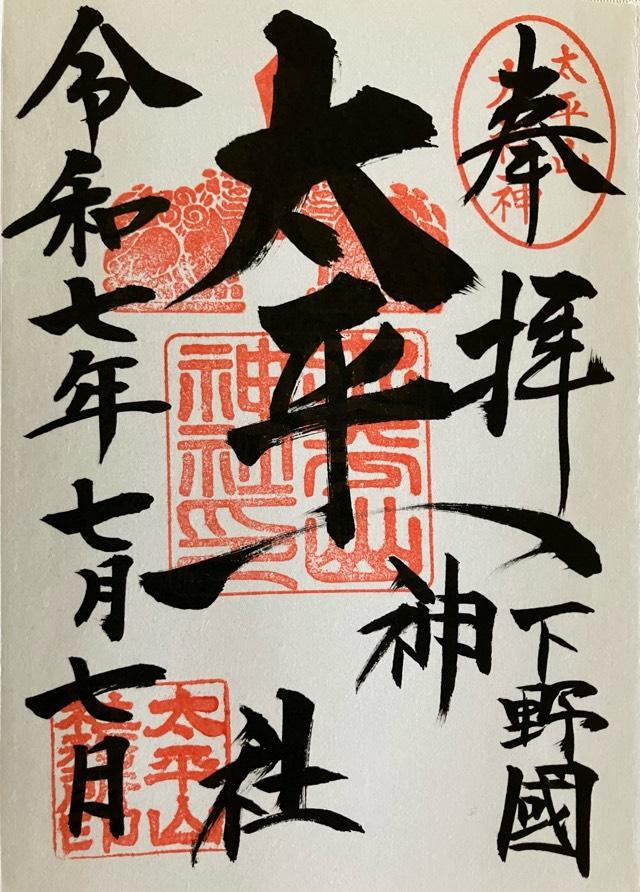 奉拝
下野國
太平山神社
令和七年七月七日
太平山
太平山
神社印
太平山